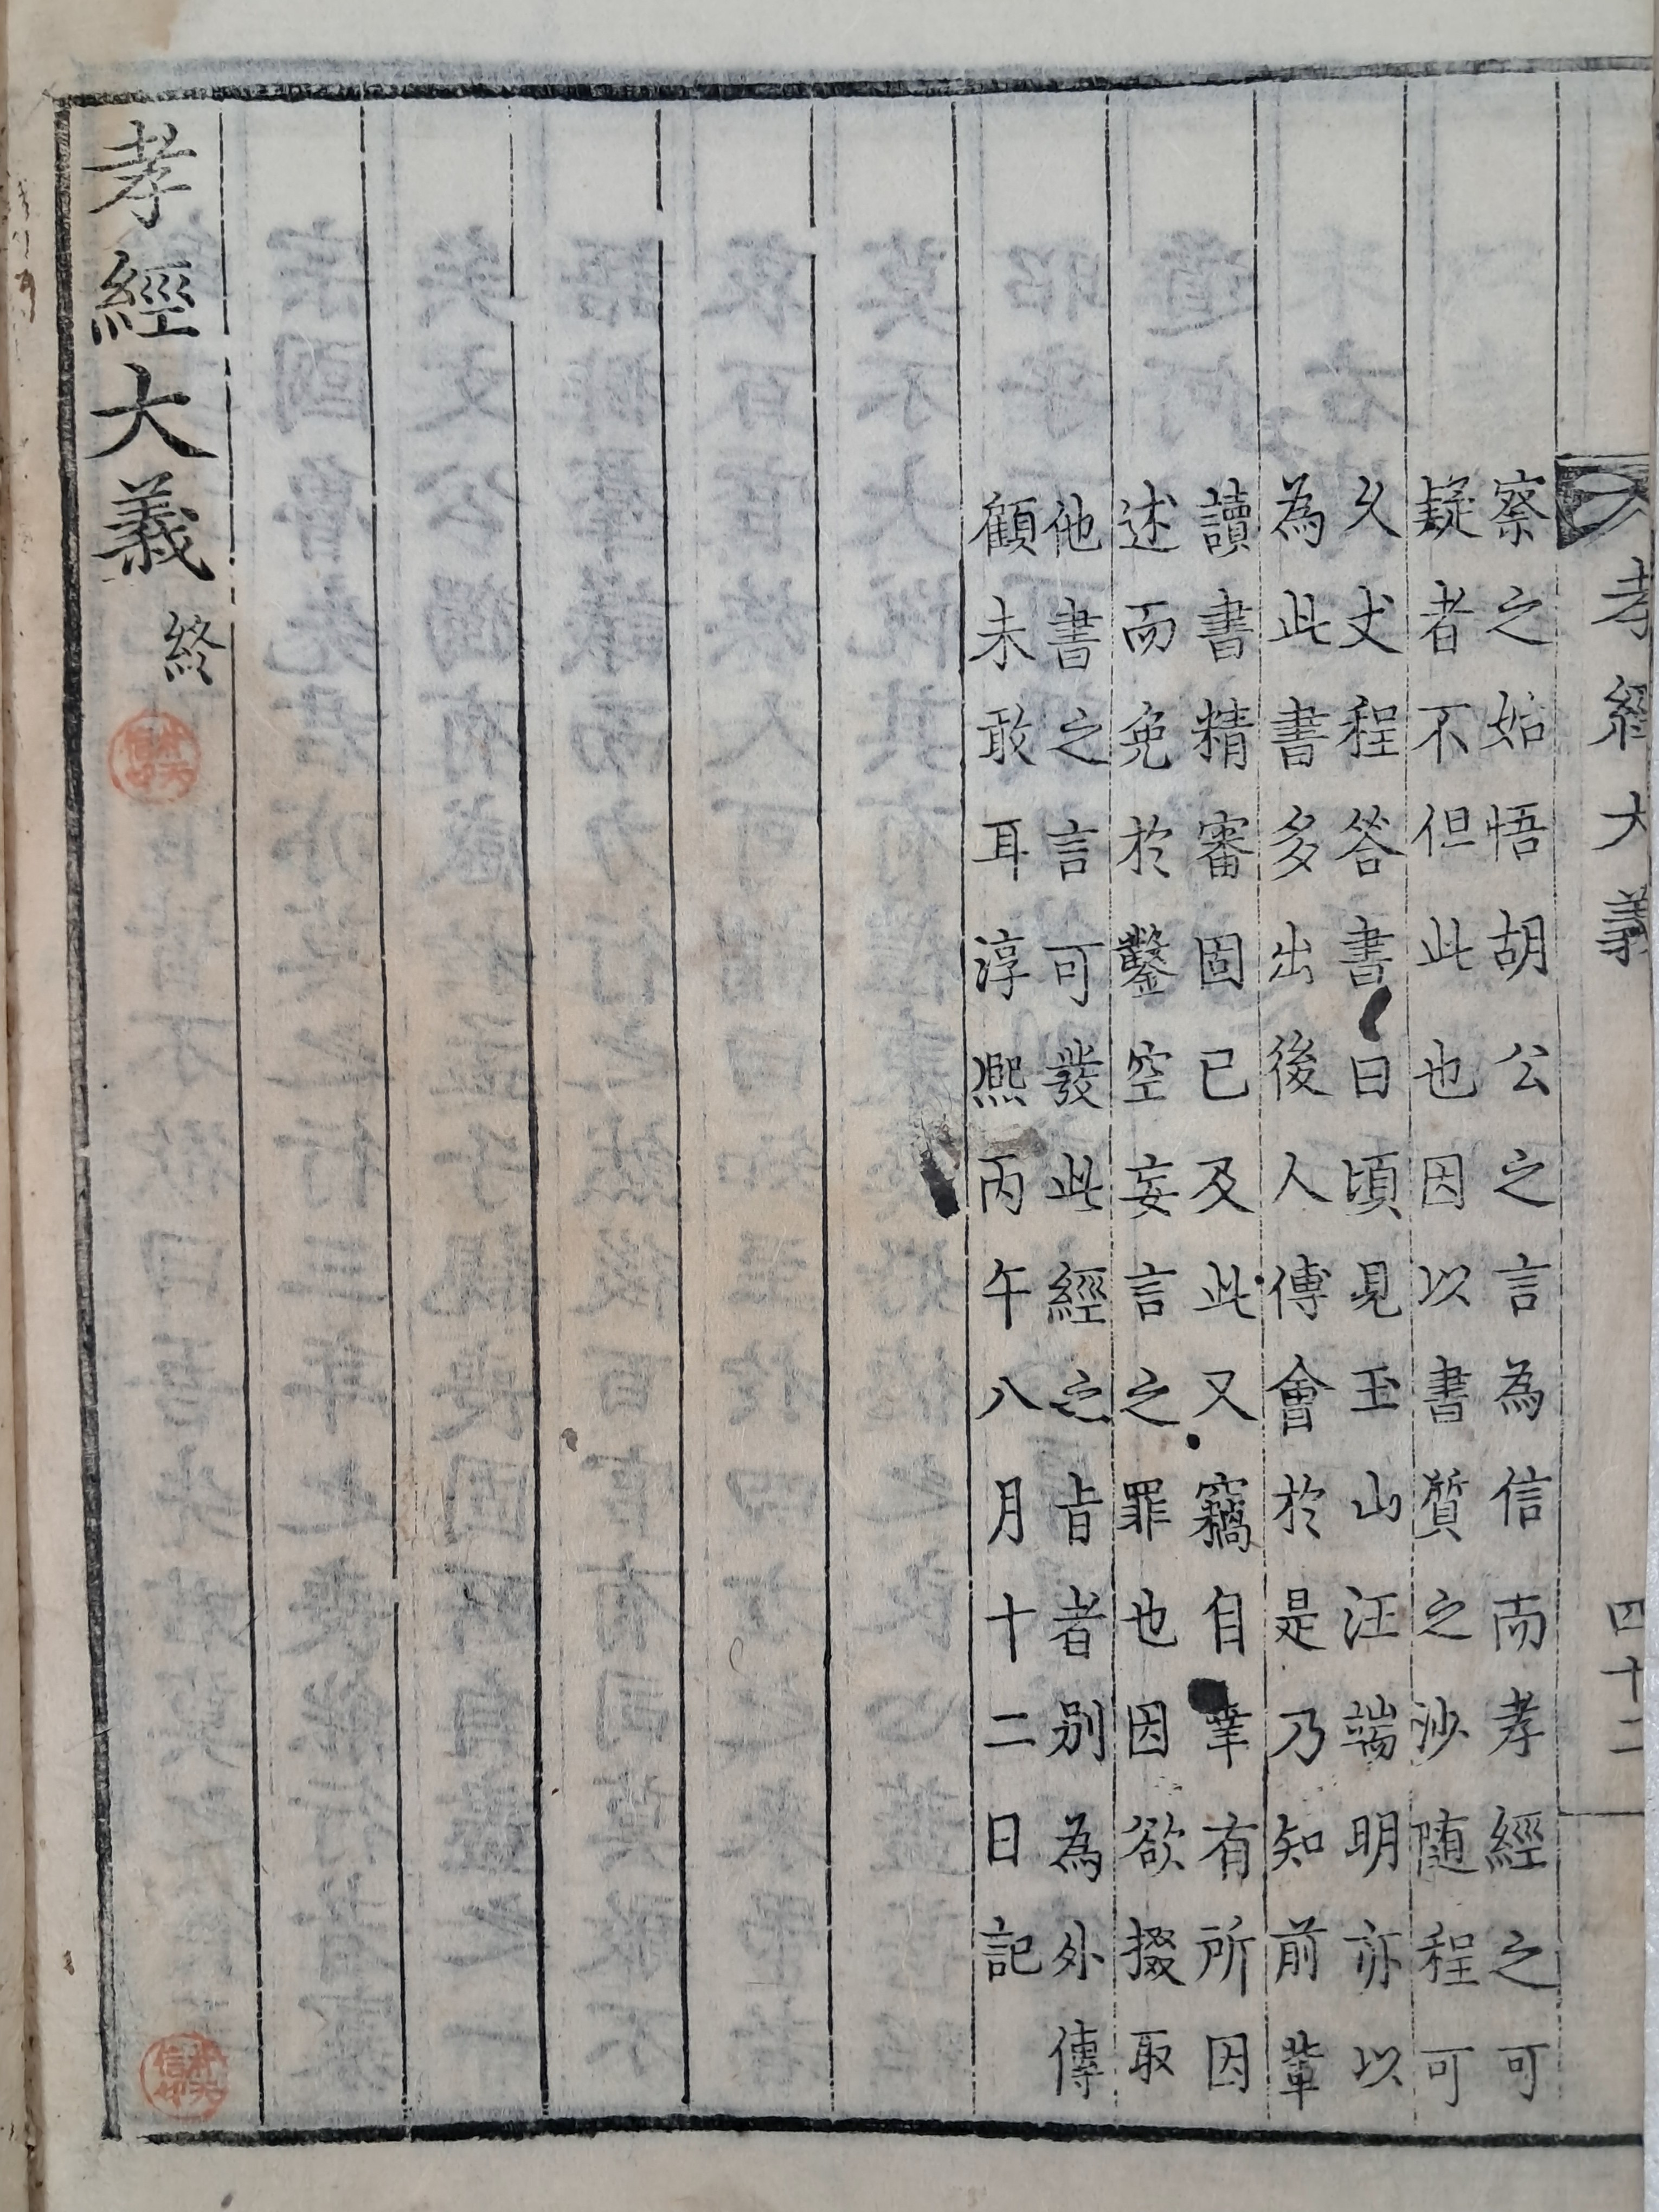 孝經大義
四十二
察之始悟胡公之言為信而孝經之可
疑者不但此也因以書質之沙随程可
久丈程荅書曰頃見玉山汪端明亦以
為此書多出後人傅會於是乃知前輩
讀書精審固已及此又竊自幸有所因
述而免於鑿空妄言之罪也因欲掇取
他書之言可發此經之㫖者别為外傳
顧未敢耳淳熈丙午八月十二日記
孝經大義終